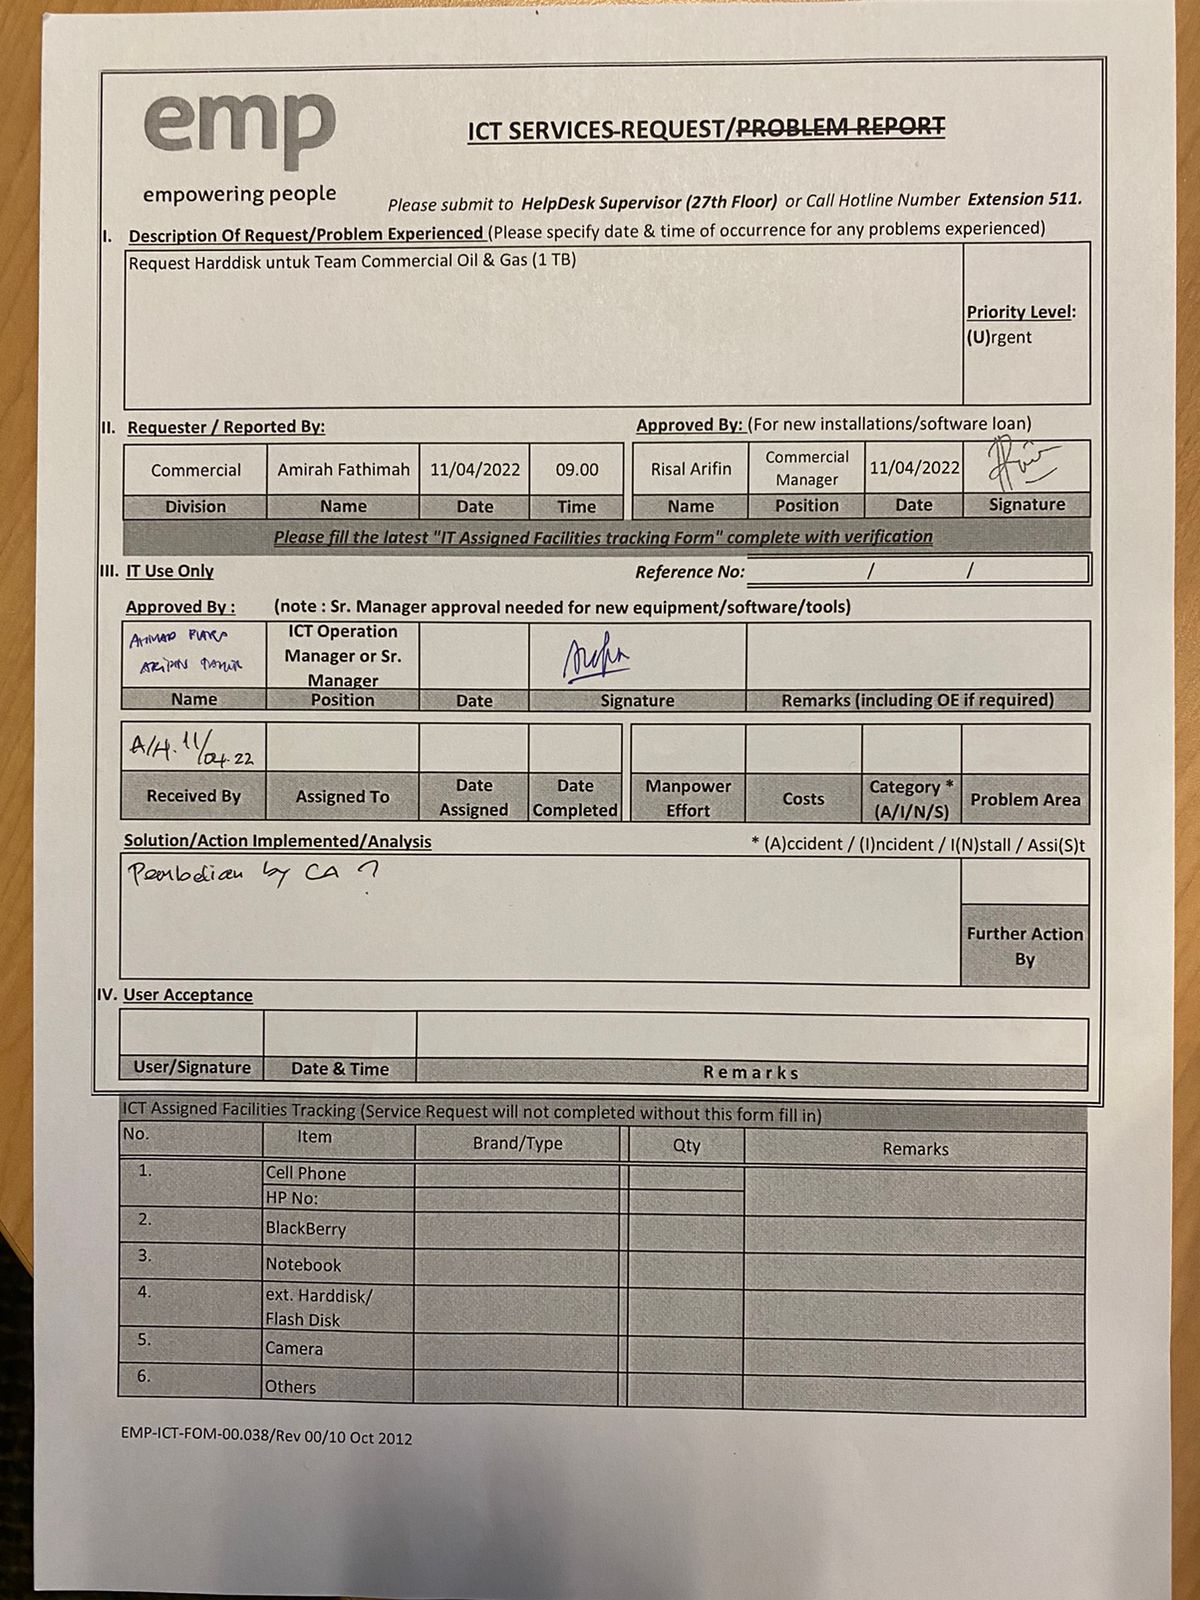 emp
empowering people
ICT SERVICES-REQUEST/PROBLEM REPORT
Please submit to HelpDesk Supervisor (27th Floor) or Call Hotline Number Extension 511.
I. Description Of Request/Problem Experienced (Please specify date & time of occurrence for any problems experienced)
Request Harddisk untuk Team Commercial Oil & Gas (1 TB)
Priority Level:
(U)rgent
II. Requester / Reported By:
Approved By: (For new installations/software loan)
Commercial Amirah Fathimah 11/04/2022 09.00 Risal Arifin Commercial Manager 11/04/2022
Division Name Date Time Name Position Date Signature
Please fill the latest "IT Assigned Facilities tracking Form" complete with verification
III. IT Use Only
Reference No: / /
Approved By : (note : Sr. Manager approval needed for new equipment/software/tools)
AHMAD
ICT Operation
Manager or Sr.
Manager
Name Position Date Signature Remarks (including OE if required)
A/H. 11/04.22
Received By Assigned To Date Assigned Date Completed Manpower Effort Costs Category * (A/I/N/S) Problem Area
Solution/Action Implemented/Analysis
* (A)ccident / (I)ncident / I(N)stall / Assi(S)t
by CA ?
Further Action
By
IV. User Acceptance
User/Signature Date & Time Remarks
ICT Assigned Facilities Tracking (Service Request will not completed without this form fill in)
No. Item Brand/Type Qty Remarks
1. Cell Phone
HP No:
2. BlackBerry
3. Notebook
4. ext. Harddisk/
Flash Disk
5. Camera
6. Others
EMP-ICT-FOM-00.038/Rev 00/10 Oct 2012